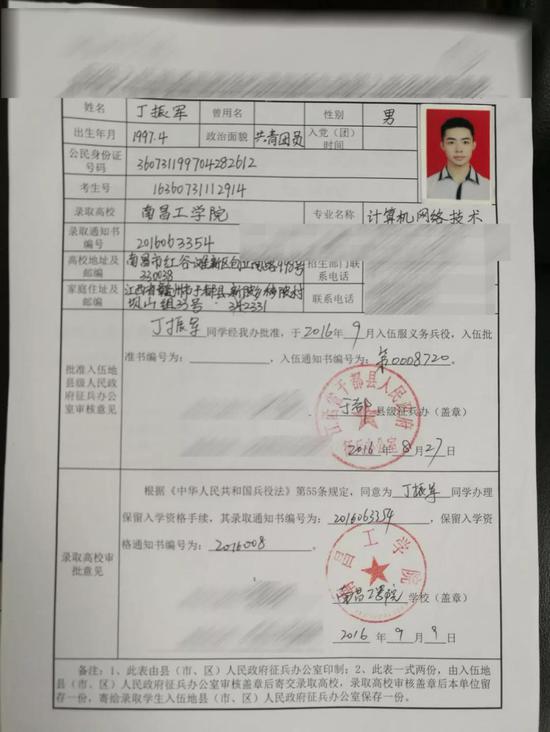 姓名 丁振军 曾用名 性别 男
出生年月 1997.4 政治面貌 共青团员 入党（团）时间
公民身份证号码 360731199704282612
考生号 16360731112914
录取高校 南昌工学院 专业名称 计算机网络技术
录取通知书编号 2016063354
高校地址及邮编 南昌市红谷滩新区 998号 330038 招生部门联系电话
家庭住址及邮编 江西省赣州市于都县新陂乡 村坝山组33号 342331 联系电话
批准入伍地县级人民政府征兵办公室审核意见
丁振军 同学经我办批准，于 2016 年 9 月入伍服义务兵役，入伍批
准书编号为： ，入伍通知书编号为：第0008720。
江西省于都县人民政府
征兵办公室
于都 县级征兵办（盖章）
2016 年 8 月 27 日
录取高校审批意见
根据《中华人民共和国兵役法》第55条规定，同意为 丁振军 同学办理
保留入学资格手续，其录取通知书编号为：2016063354，保留入学资
格通知书编号为：2016008。
南昌工学院
南昌工学院 学校（盖章）
2016 年 9 月 9 日
备注：1、此表由县（市、区）人民政府征兵办公室印制；2、此表一式两份，由入伍地
县（市、区）人民政府征兵办公室审核盖章后寄交录取高校，录取高校审核盖章后本单位留
存一份，寄给录取学生入伍地县（市、区）人民政府征兵办公室保存一份。